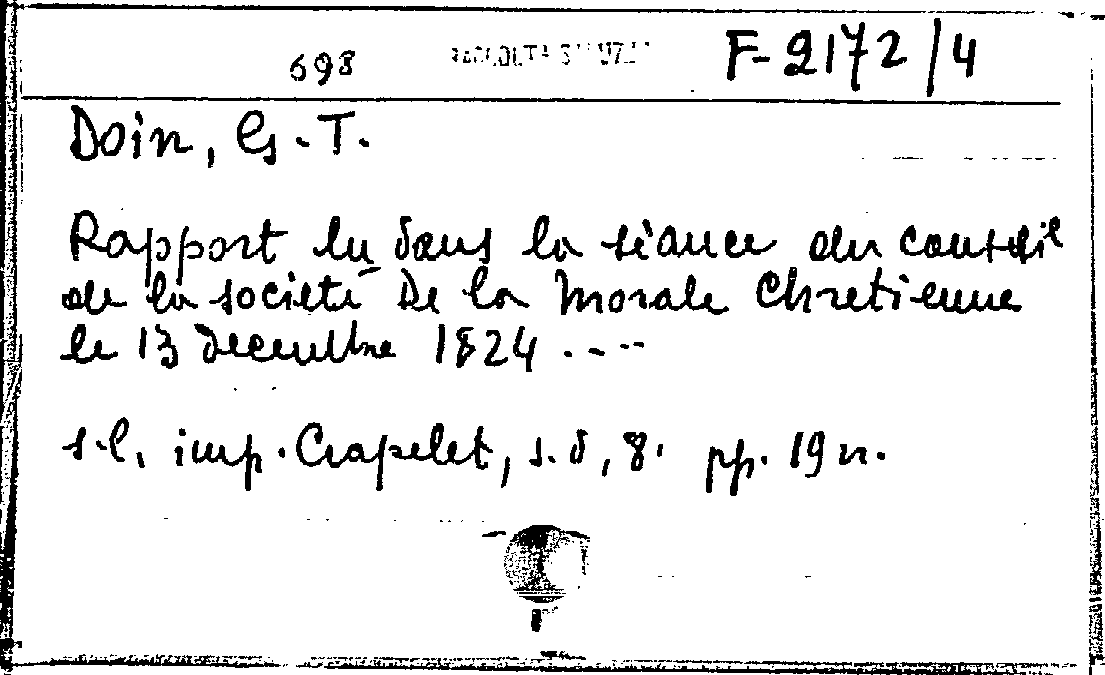 698 RACCOLTA F-2172/4
Doin, G.T.
Rapport lu dans la séance du conseil
de la société De la Morale Chretienne
le 13 decembre 1824 ....
s.l. imp. Crapelet, s.d, 8. pp. 19 n.